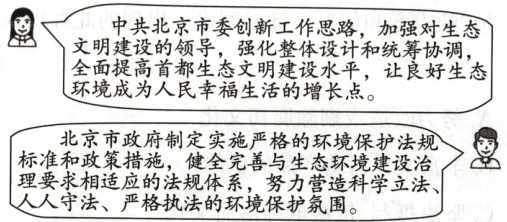 中共北京市委创新工作思路，加强对生态
文明建设的领导，强化整体设计和统筹协调，
全面提高首都生态文明建设水平，让良好生态
环境成为人民幸福生活的增长点。
北京市政府制定实施严格的环境保护法规
标准和政策措施，健全完善与生态环境建设治
理要求相适应的法规体系，努力营造科学立法、
人人守法、严格执法的环境保护氛围。